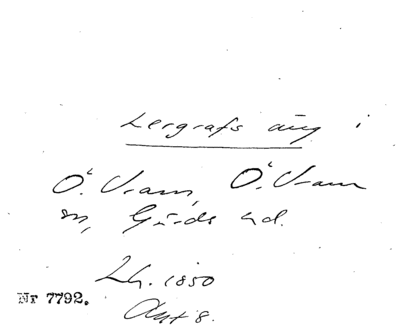 Lergrafs äng i
Ö. Vram, Ö. Vram
sn, Gärds hd.
Lh. 1850
Nr 7792.
Akt 8.